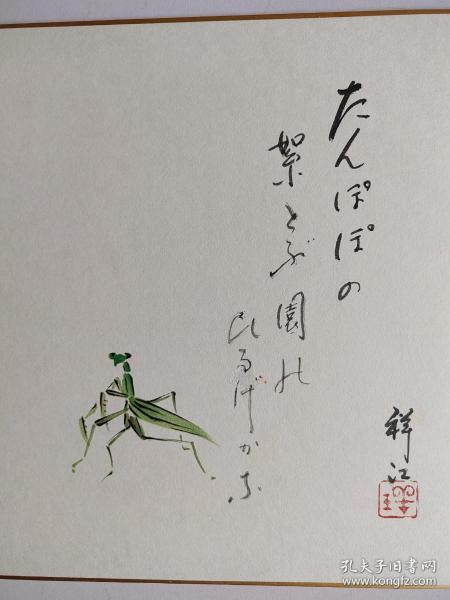 たんぽぽの
絮とぶ園の
ひるげかな
祥江
孔夫子旧书网
www.kongfz.com